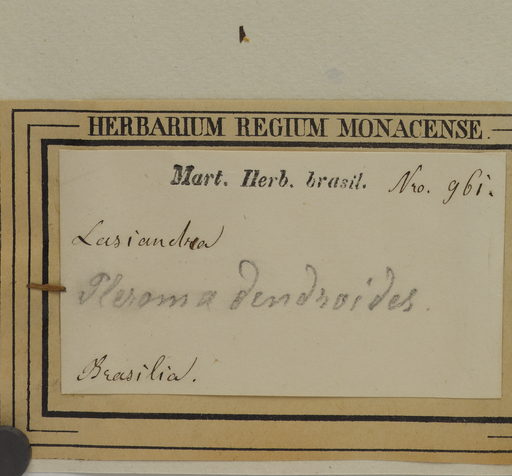 HERBARIUM REGIUM MONACENSE.
Mart. Herb. brasil. Nro. 961.
Lasiandra
Pleroma dendroides.
Brasilia.